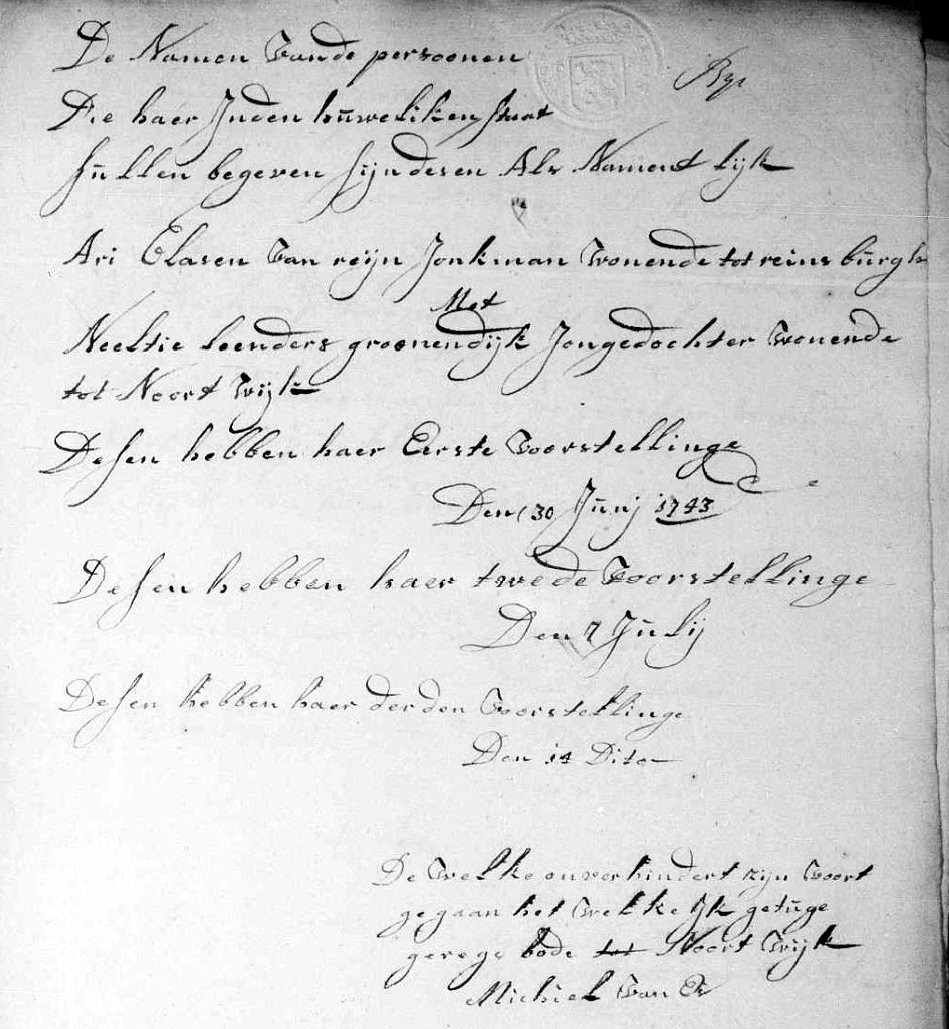 De Namen Vande persoonen
Die haer Inden huweliken staet
sullen begeven sijn desen Als Nament lijk
Ari Clasen Van reijn Jonkman Wonende tot reinsburgh
Met
Neeltie leenders groenendijk Jongedochter Wonende
tot Noort Wijk
Desen hebben haer Eerste Voorstellinge
Den 30 Junij 1743
Desen hebben haer twede Voorstellinge
Den 7 Julij
Desen hebben haer derden Voorstellinge
Den 14 Dito
De Welke onverhindert zijn Voort
gegaan het Welke Ik getuge
geregs bode tot Noort Wijk
Michiel Van